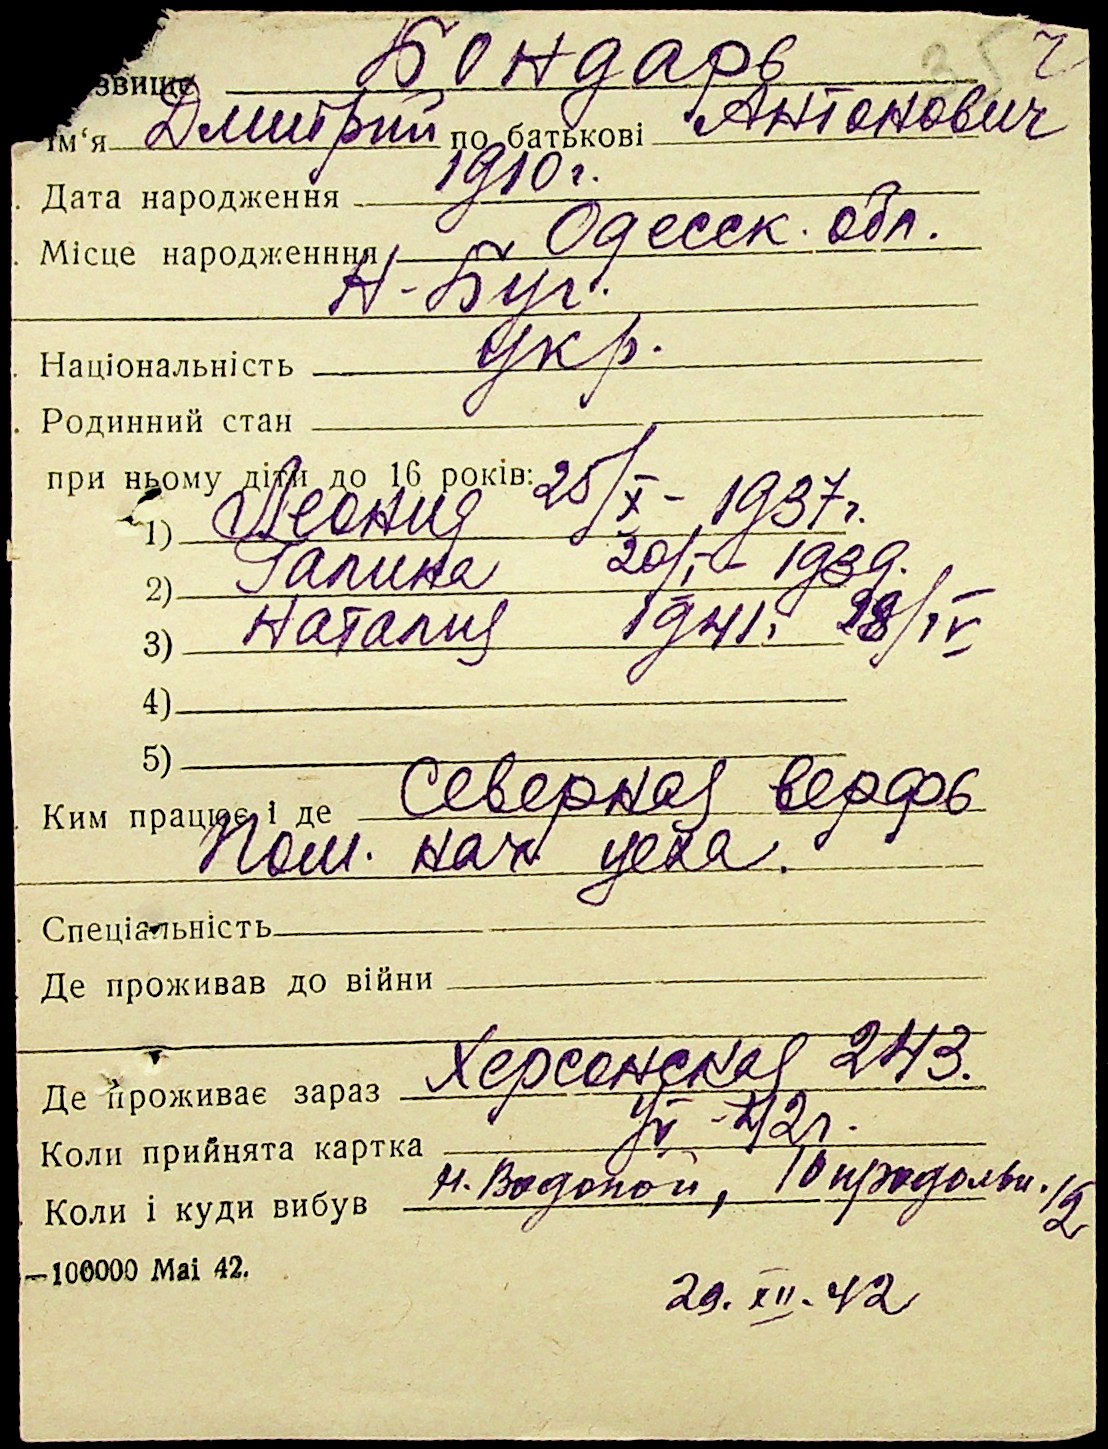 звище Бондарь
ім‘я Дмитрий по батькові Антонович
Дата народження 1910 г.
Місце народженння Одесск. обл.
Н-Буг.
Національність укр.
Родинний стан
при ньому діти до 16 років:
1) Леонид 25/X - 1937 г.
2) Галина 20/I - 1939.
3) Наталия 1941. 28/IV
4)
5)
Ким працює і де Северная верфь
Пом. нач. цеха.
Спеціальність
Де проживав до війни
Де проживає зараз Херсонская 243.
Коли прийнята картка 42 г.
Коли і куди вибув н. Водопой, 10 продольн. 12
—100000 Mai 42.
29. XII. 42